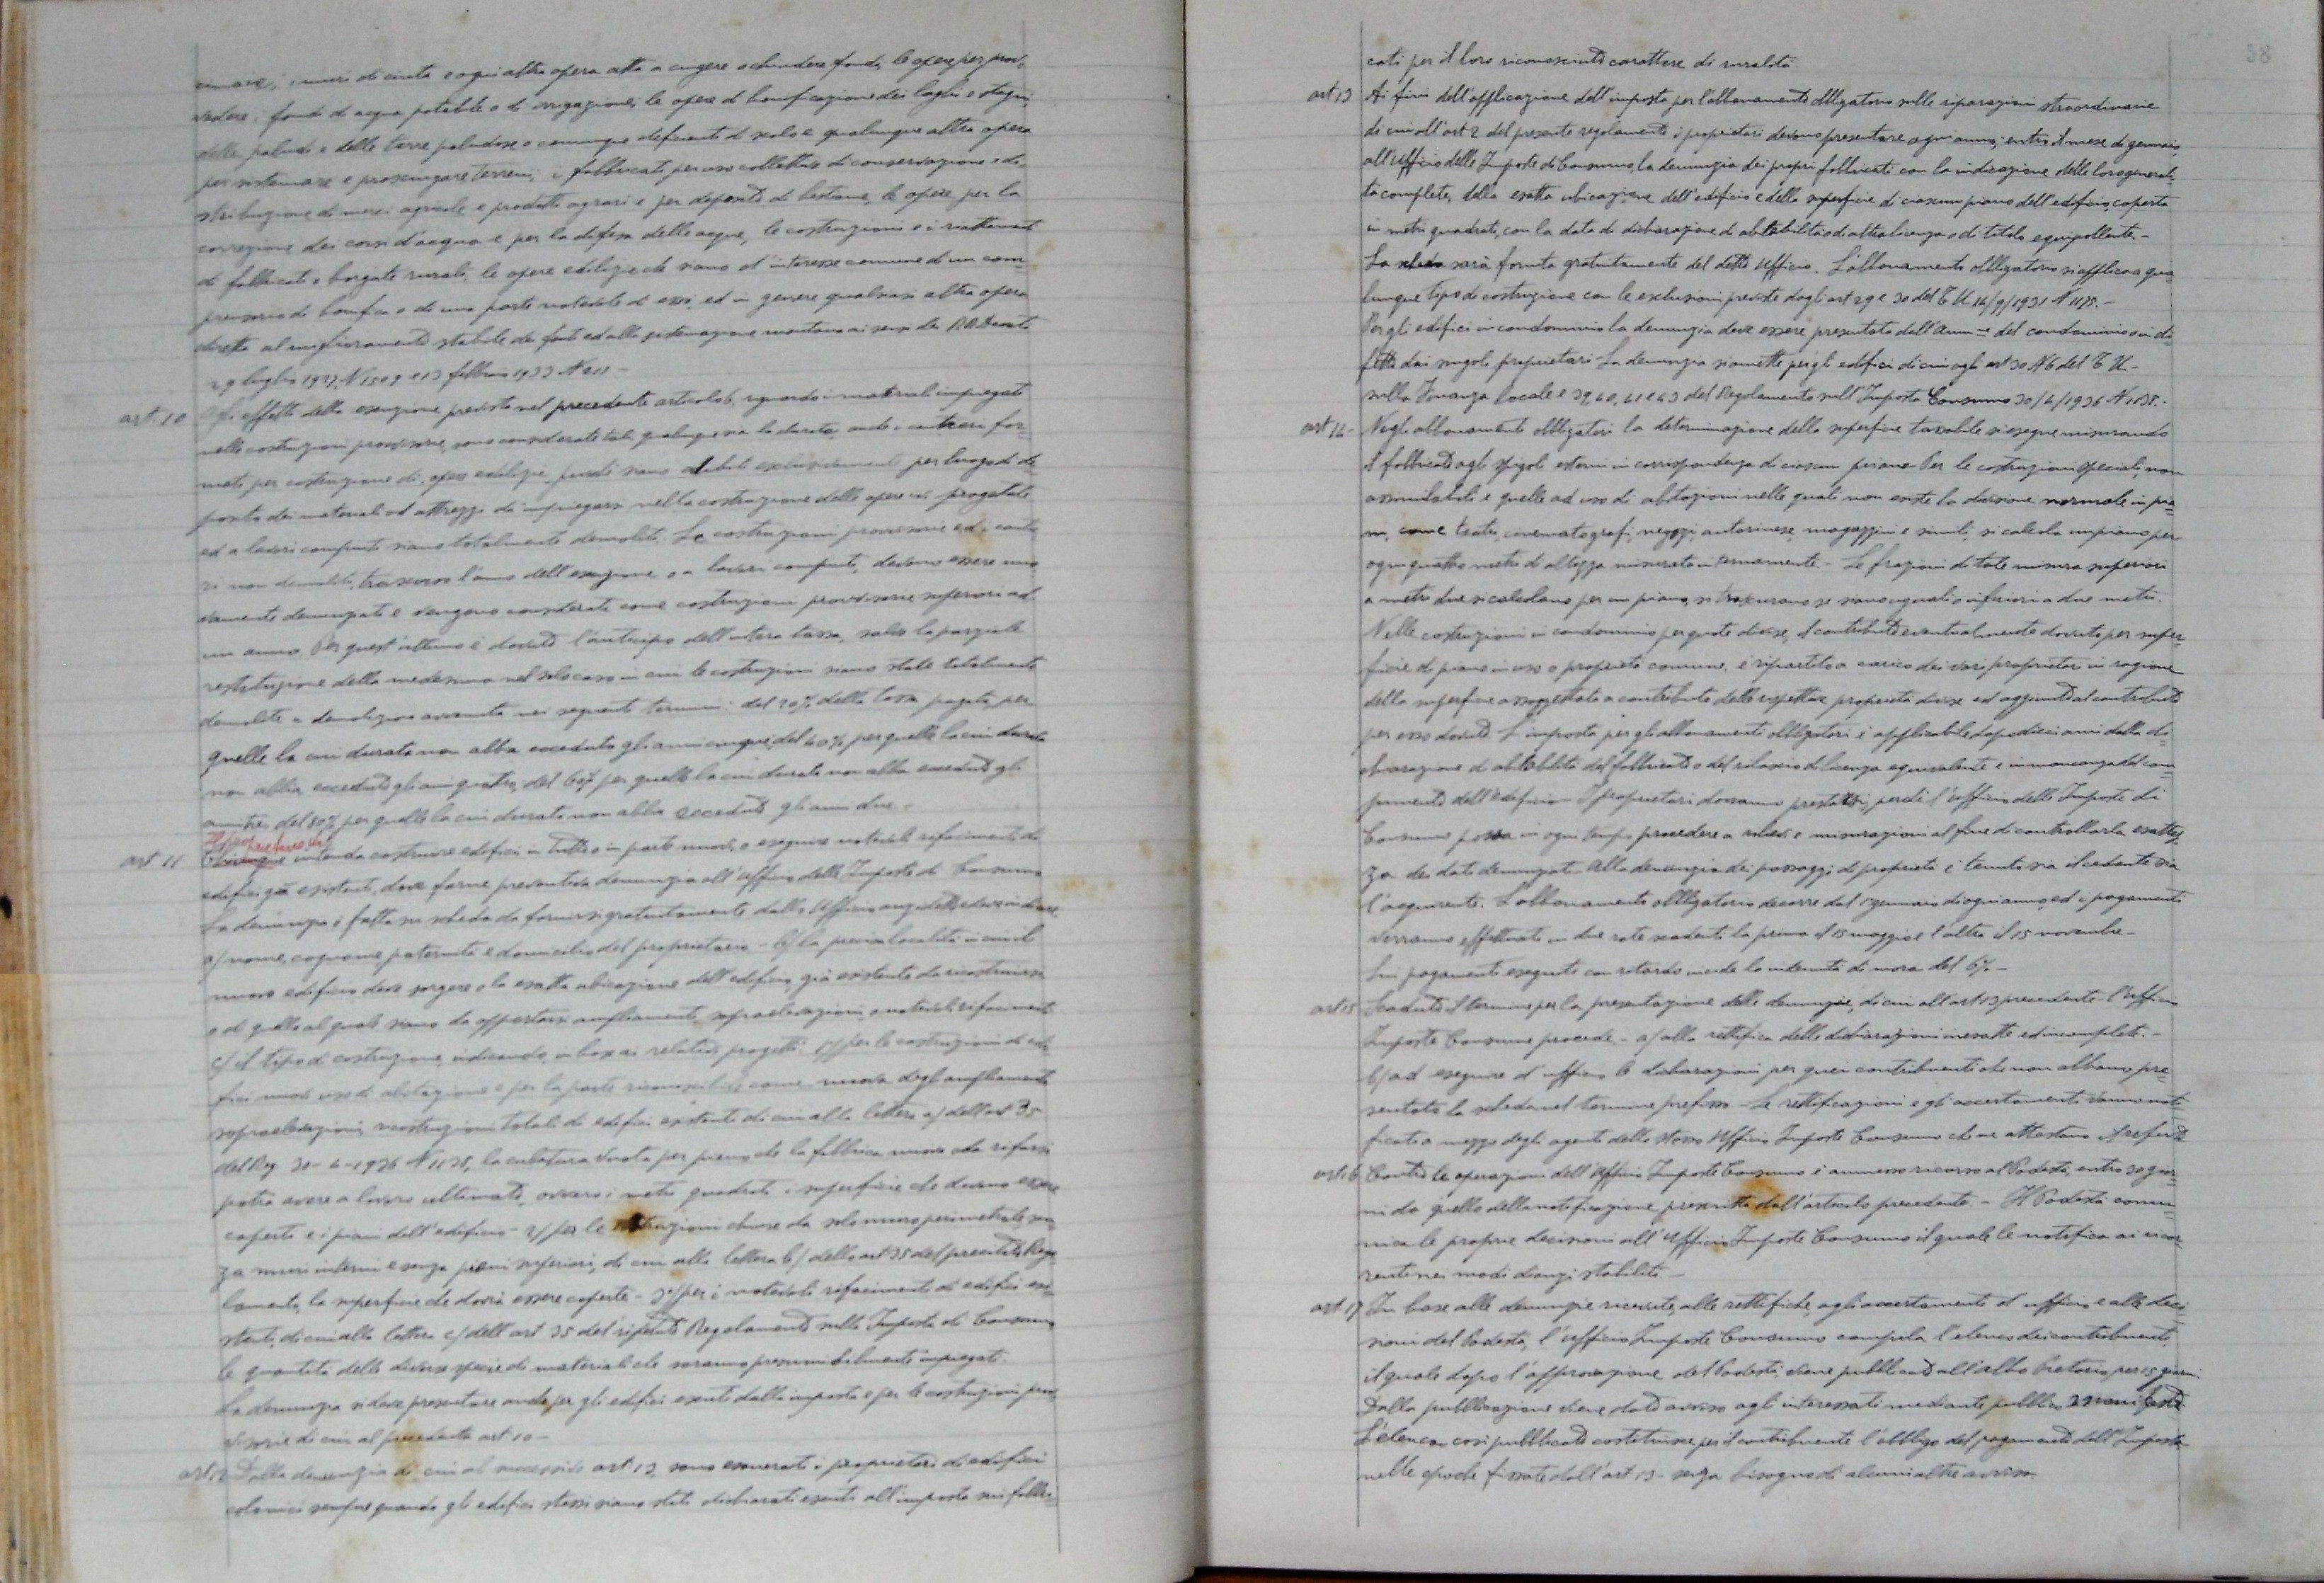 i muri di cinta e ogni altra opera atta a cingere o chiudere fondi, le opere per prov-
vedere i fondi di acqua potabile o di irrigazione; le opere di bonificazione dei laghi e stagni,
delle paludi e delle terre paludose o comunque deficienti di scolo e qualunque altra opera
per sistemare e prosciugare terreni; i fabbricati per uso collettivo di conservazione e di-
stribuzione di merci agricole e prodotti agrari e per deposito di bestiame, le opere per la
correzione dei corsi d'acqua e per la difesa delle acque, le costruzioni e i riattamenti
di fabbricati o borgate rurali, le opere edilizie che siano d'interesse comune di un com=
prensorio di bonifica o di una parte notevole di esso, ed in genere qualsiasi altra opera
diretta al miglioramento stabile dei fondi ed alla sistemazione montana ai sensi dei RR Decreti
29 luglio 1927, N 1509 e 13 febbraio 1933 N 211 -
art. 10 Agli effetti della esenzione prevista nel precedente articolo 6, riguardo i materiali impiegati
nelle costruzioni provvisorie, sono considerate tali, qualunque sia la durata, anche i cantieri for=
mati per costruzione di opere edilizie, purché siano adibiti esclusivamente per luogo di de
posito dei materiali od attrezzi da impiegarsi nella costruzione delle opere ivi progettate
ed a lavori compiuti siano totalmente demoliti. Le costruzioni provvisorie ed i cantie
ri non demoliti, trascorso l'anno dell'esenzione o a lavori compiuti, devono essere nuo
vamente denunziati e vengono considerati come costruzioni provvisorie superiori ad
un anno. Per quest'ultimo è dovuto l'anticipo dell'intera tassa, salvo la parziale
restituzione della medesima nel solo caso in cui le costruzioni siano state totalmente
demolite a demolizione avvenuta nei seguenti termini: del 20% della tassa pagata, per
quelle la cui durata non abbia ecceduto gli anni cinque; del 40% per quelle la cui durata
non abbia ecceduto gli anni quattro; del 60% per quelle la cui durata non abbia ecceduto gli
anni tre; del 80% per quelle la cui durata non abbia ecceduto gli anni due.
Il proprietario che
art 11 Chiunque intenda costruire edifici in tutto o in parte nuovi, o eseguire notevoli rifacimenti di
edifici già esistenti, deve farne preventiva denunzia all'Ufficio delle Imposte di Consumo
La denunzia è fatta su scheda da fornirsi gratuitamente dallo Ufficio anzidetto e deve indicare
a/ nome, cognome paternità e domicilio del proprietario - b/ la precisa località in cui il
nuovo edificio deve sorgere o la esatta ubicazione dell'edificio, già esistente da ricostruirsi
o di quello al quale siano da apportarsi ampliamenti, sopraelevazioni, o notevoli rifacimenti
c/ il tipo di costruzione, indicando, in base ai relativi progetti: 1°/ per le costruzioni di edi-
fici nuovi uso di abitazione e per la parte riconoscibile come nuova degli ampliamenti
sopraelevazioni, ricostruzioni totali di edifici esistenti di cui alla lettera a/ dell'art 35
del Reg. 30-4-1936 N 1138, la cubatura vuota per pieno che la fabbrica nuova o da rifarsi
potrà avere a lavoro ultimato, ovvero i metri quadrati superficie che devono essere
coperti e i piani dell'edificio - 2/ per le costruzioni chiuse da solo muro perimetrale sen
za muri interni e senza piani superiori, di cui alla lettera b/ dello art 35 del precitato Rego
lamento, la superficie che dovrà essere coperta - 3°/ per i notevoli rifacimenti di edifici esi-
stenti, di cui alla lettera c/ dell'art 35 del ripetuto Regolamento sulle Imposte di Consumo
le quantità delle diverse specie di materiali che saranno presumibilmente impiegati.
La denunzia si deve presentare anche per gli edifici esenti dalla imposta e per le costruzioni prov-
visorie di cui al precedente art 10 -
art 12 Dalla denunzia di cui al successivo art 13, sono esonerati i proprietari di edifici
colonici sempre quando gli edifici stessi siano stati dichiarati esenti all'imposta sui fabbri=
38
cati per il loro riconosciuto carattere di ruralità
art 13 Ai fini dell'applicazione dell'imposta per l'abbonamento obbligatorio sulle riparazioni straordinarie
di cui all'art 2 del presente regolamento i proprietari devono presentare ogni anno, entro il mese di gennaio,
all'Ufficio delle Imposte di Consumo, la denunzia dei propri fabbricati con la indicazione delle loro generali-
tà complete, della esatta ubicazione dell'edificio e della superficie di ciascun piano dell'edificio, coperta
in metri quadrati, con la data di dichiarazione di abitabilità o di altra licenza o di titolo equipollente. -
La scheda sarà fornita gratuitamente del detto Ufficio. L'abbonamento obbligatorio si applica a qua
lunque tipo di costruzione con le esclusioni previste dagli art 29 e 30 del T U 14/9/1931 N 1175. -
Per gli edifici in condominio la denunzia deve essere presentata dall'Amm.ne del condominio o in di
fetto dai singoli proprietari - La denunzia si omette per gli edifici di cui agli art 30 N 6 del T U -
sulla Finanza locale e 39, 40, 41 e 43 del Regolamento sull'Imposta Consumo 30/4/1936 N 1138. -
art 14 - Negli abbonamenti obbligatori la determinazione della superficie tassabile si esegue misurando
il fabbricato agli spigoli esterni in corrispondenza di ciascun piano - Per le costruzioni speciali, non
assimilabili a quelle ad uso di abitazioni nelle quali non esiste la divisione normale in pia=
ni, come teatri, cinematografi, negozi, autorimesse, magazzini e simili, si calcola un piano per
ogni quattro metri di altezza misurata internamente - Le frazioni di tale misura superiori
a metri due si calcolano per un piano, si trascurano se siano uguali o inferiori a due metri.
Nelle costruzioni in condominio per quote divise, il contributo eventualmente dovuto per super
ficie di piano in uso o proprietà comune, è ripartito a carico dei vari proprietari in ragione
della superficie assoggettata a contributo delle rispettive proprietà divise ed aggiunto al contributo
per esse dovuto. L'imposta per gli abbonamenti obbligatori è applicabile dopo dieci anni dalla di=
chiarazione di abitabilità del fabbricato o del rilascio di licenza equivalente e in mancanza del com=
pimento dell'edificio - I proprietari dovranno prestarsi, perché l'ufficio delle Imposte di
Consumo possa in ogni tempo procedere a rilievi e misurazioni al fine di controllarla esattez
za dei dati denunziati - Alla denunzia dei passaggi di proprietà è tenuto sia il cedente sia
l'acquirente. L'abbonamento obbligatorio decorre dal 1 gennaio di ogni anno, ed i pagamenti
verranno effettuati in due rate scadenti la prima il 15 maggio e l'altra il 15 novembre -
Sui pagamenti eseguiti con ritardo incide la indennità di mora del 6% -
art 15 Scaduto il termine per la presentazione delle denunzie, di cui all'art 13 precedente l'Ufficio
Imposte Consumo procede - a/ alla rettifica delle dichiarazioni inesatte ed incomplete. -
b/ ad eseguire d'ufficio le dichiarazioni per quei contribuenti che non abbiano pre=
sentato la scheda nel termine prefisso - Le rettificazioni e gli accertamenti vanno noti=
ficati a mezzo degli agenti dello stesso Ufficio Imposte Consumo che ne attestano il referto
art. 16 Contro le operazioni dell'Ufficio Imposte Consumo è ammesso ricorso al Podestà, entro 30 gior=
ni da quello della notificazione prescritta dall'articolo precedente - Il Podestà comu=
nica le proprie decisioni all'Ufficio Imposte Consumo il quale le notifica ai ricor=
renti nei modi dianzi stabiliti -
art 17 In base alle denunzie ricevute, alle rettifiche, agli accertamenti d'ufficio e alle deci=
sioni del Podestà, l'ufficio Imposte Consumo compila l'elenco dei contribuenti
il quale dopo l'approvazione del Podestà, viene pubblicato all'albo Pretorio per 15 giorni.
Dalla pubblicazione viene dato avviso agli interessati mediante pubblico manifesto
L'elenco così pubblicato costituisce per il contribuente l'obbligo del pagamento dell'Imposta
nelle epoche fissate dall'art 13 - senza bisogno di alcuni altre avviso.